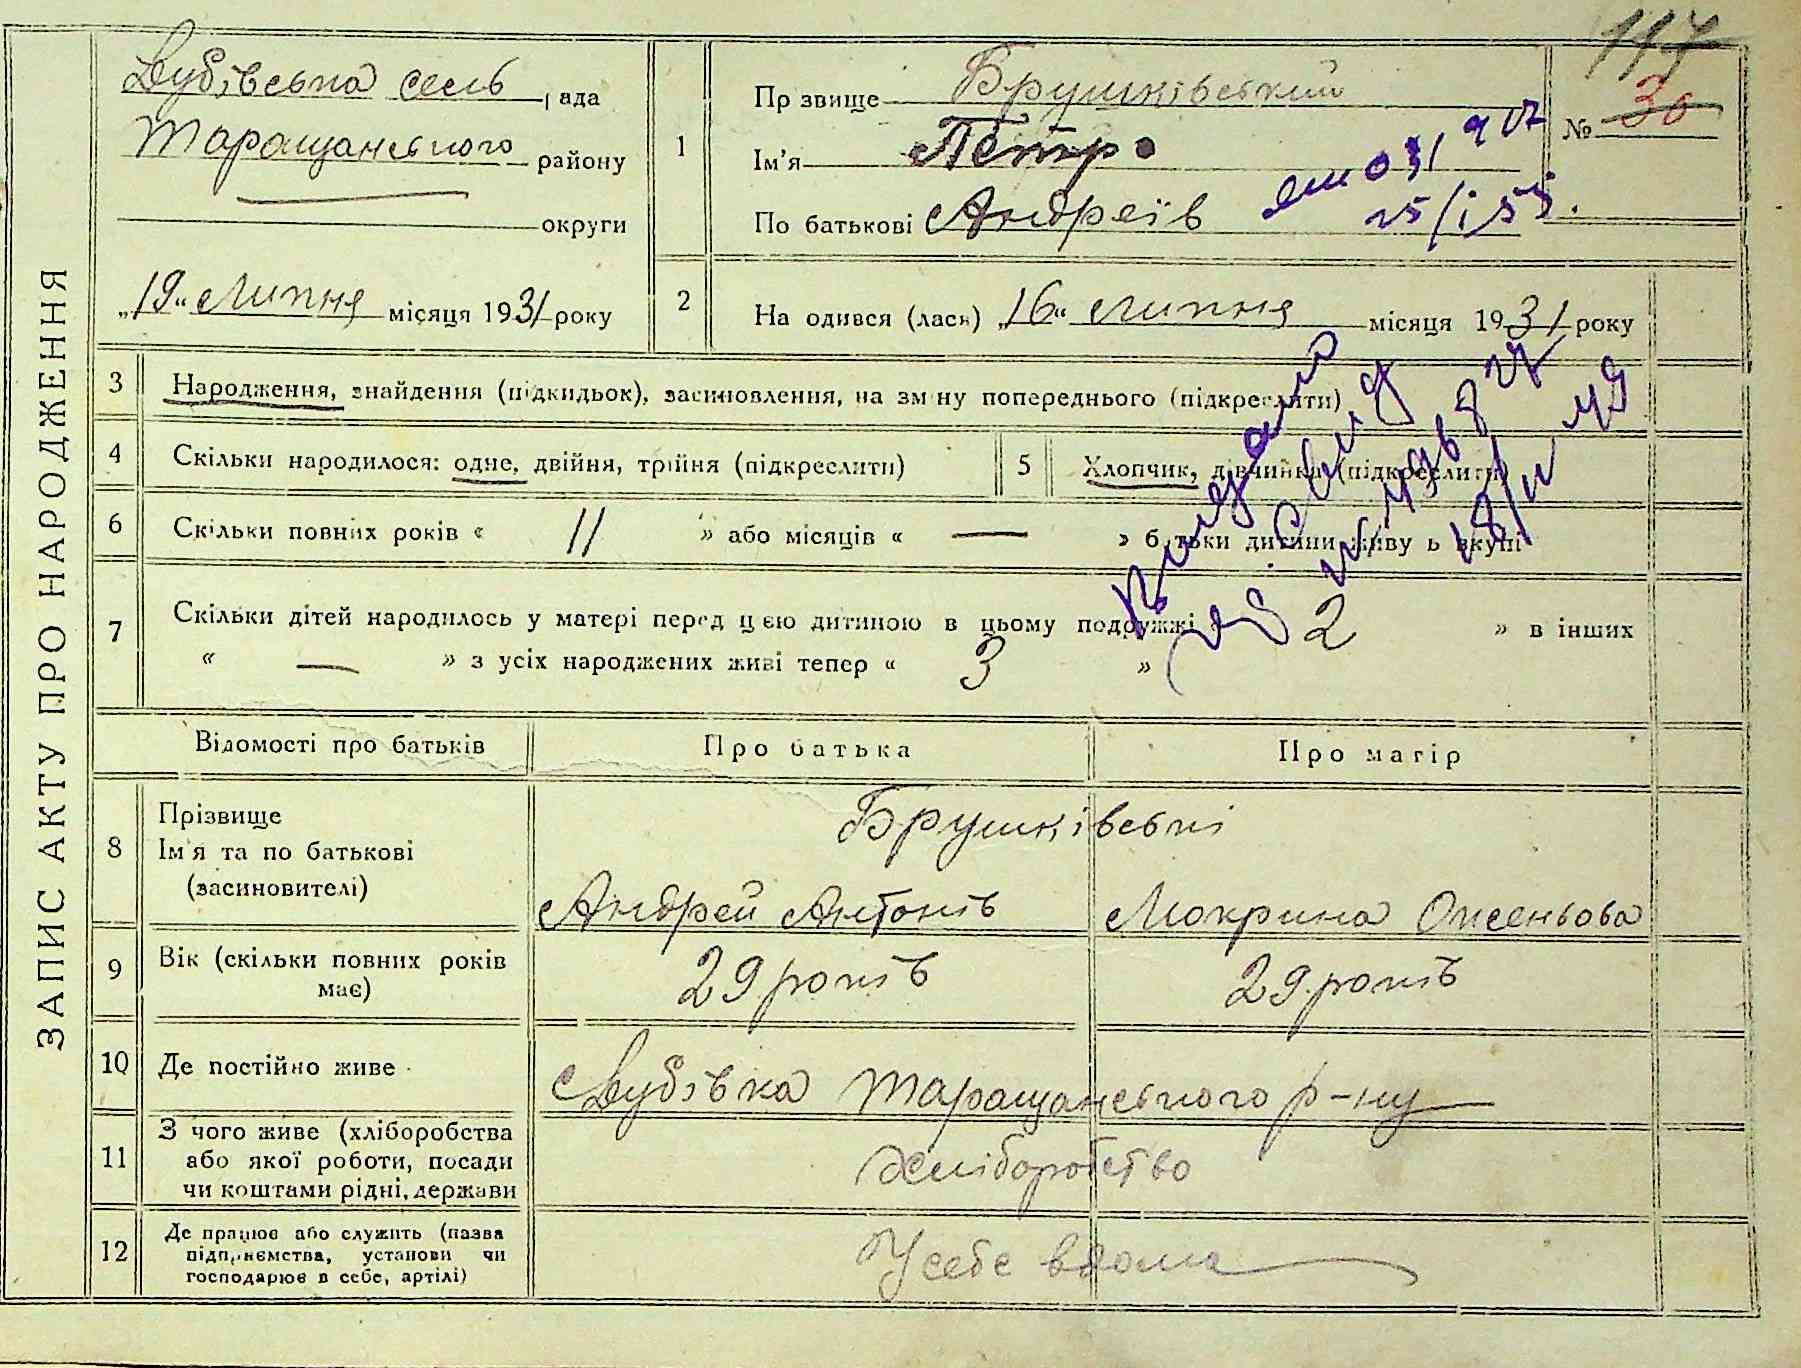 ЗАПИС АКТУ ПРО НАРОДЖЕННЯ
117
Дубівська сель рада
Таращанського району
округи
„19“ Липня місяця 1931 року
1
Прзвище Брушківський
№ 30
Ім'я Петро
По батькові Андреїв
25/I 55.
2
На одився (лась) „16“ Липня місяця 1931 року
3 Народження, знайдення (підкидьок), засиновлення, на зміну попереднього (підкреслити)
4 Скільки народилося: одне, двійня, трійня (підкреслити)
5 Хлопчик, дівчинка (підкреслити)
6 Скільки повних років « 11 » або місяців « — » батьки дитини живуть вкупі
Видано
18/IV 49
7 Скільки дітей народилось у матері перед цією дитиною в цьому подружжі « 2 » в інших
« — » з усіх народжених живі тепер « 3 »
Відомості про батьків
Про батька
Про матір
8 Прізвище
Ім'я та по батькові
(засиновителі)
Брушківські
Андрей Антонів
Мокрина Оксеньова
9 Вік (скільки повних років
має)
29 років
29 років
10 Де постійно живе
с Дубівка Таращанського р-ну
11 З чого живе (хліборобства
або якої роботи, посади
чи коштами рідні, держави
Хліборобство
12 Де працює або служить (назва
підприємства, установи чи
господарює в себе, артілі)
У себе вдома